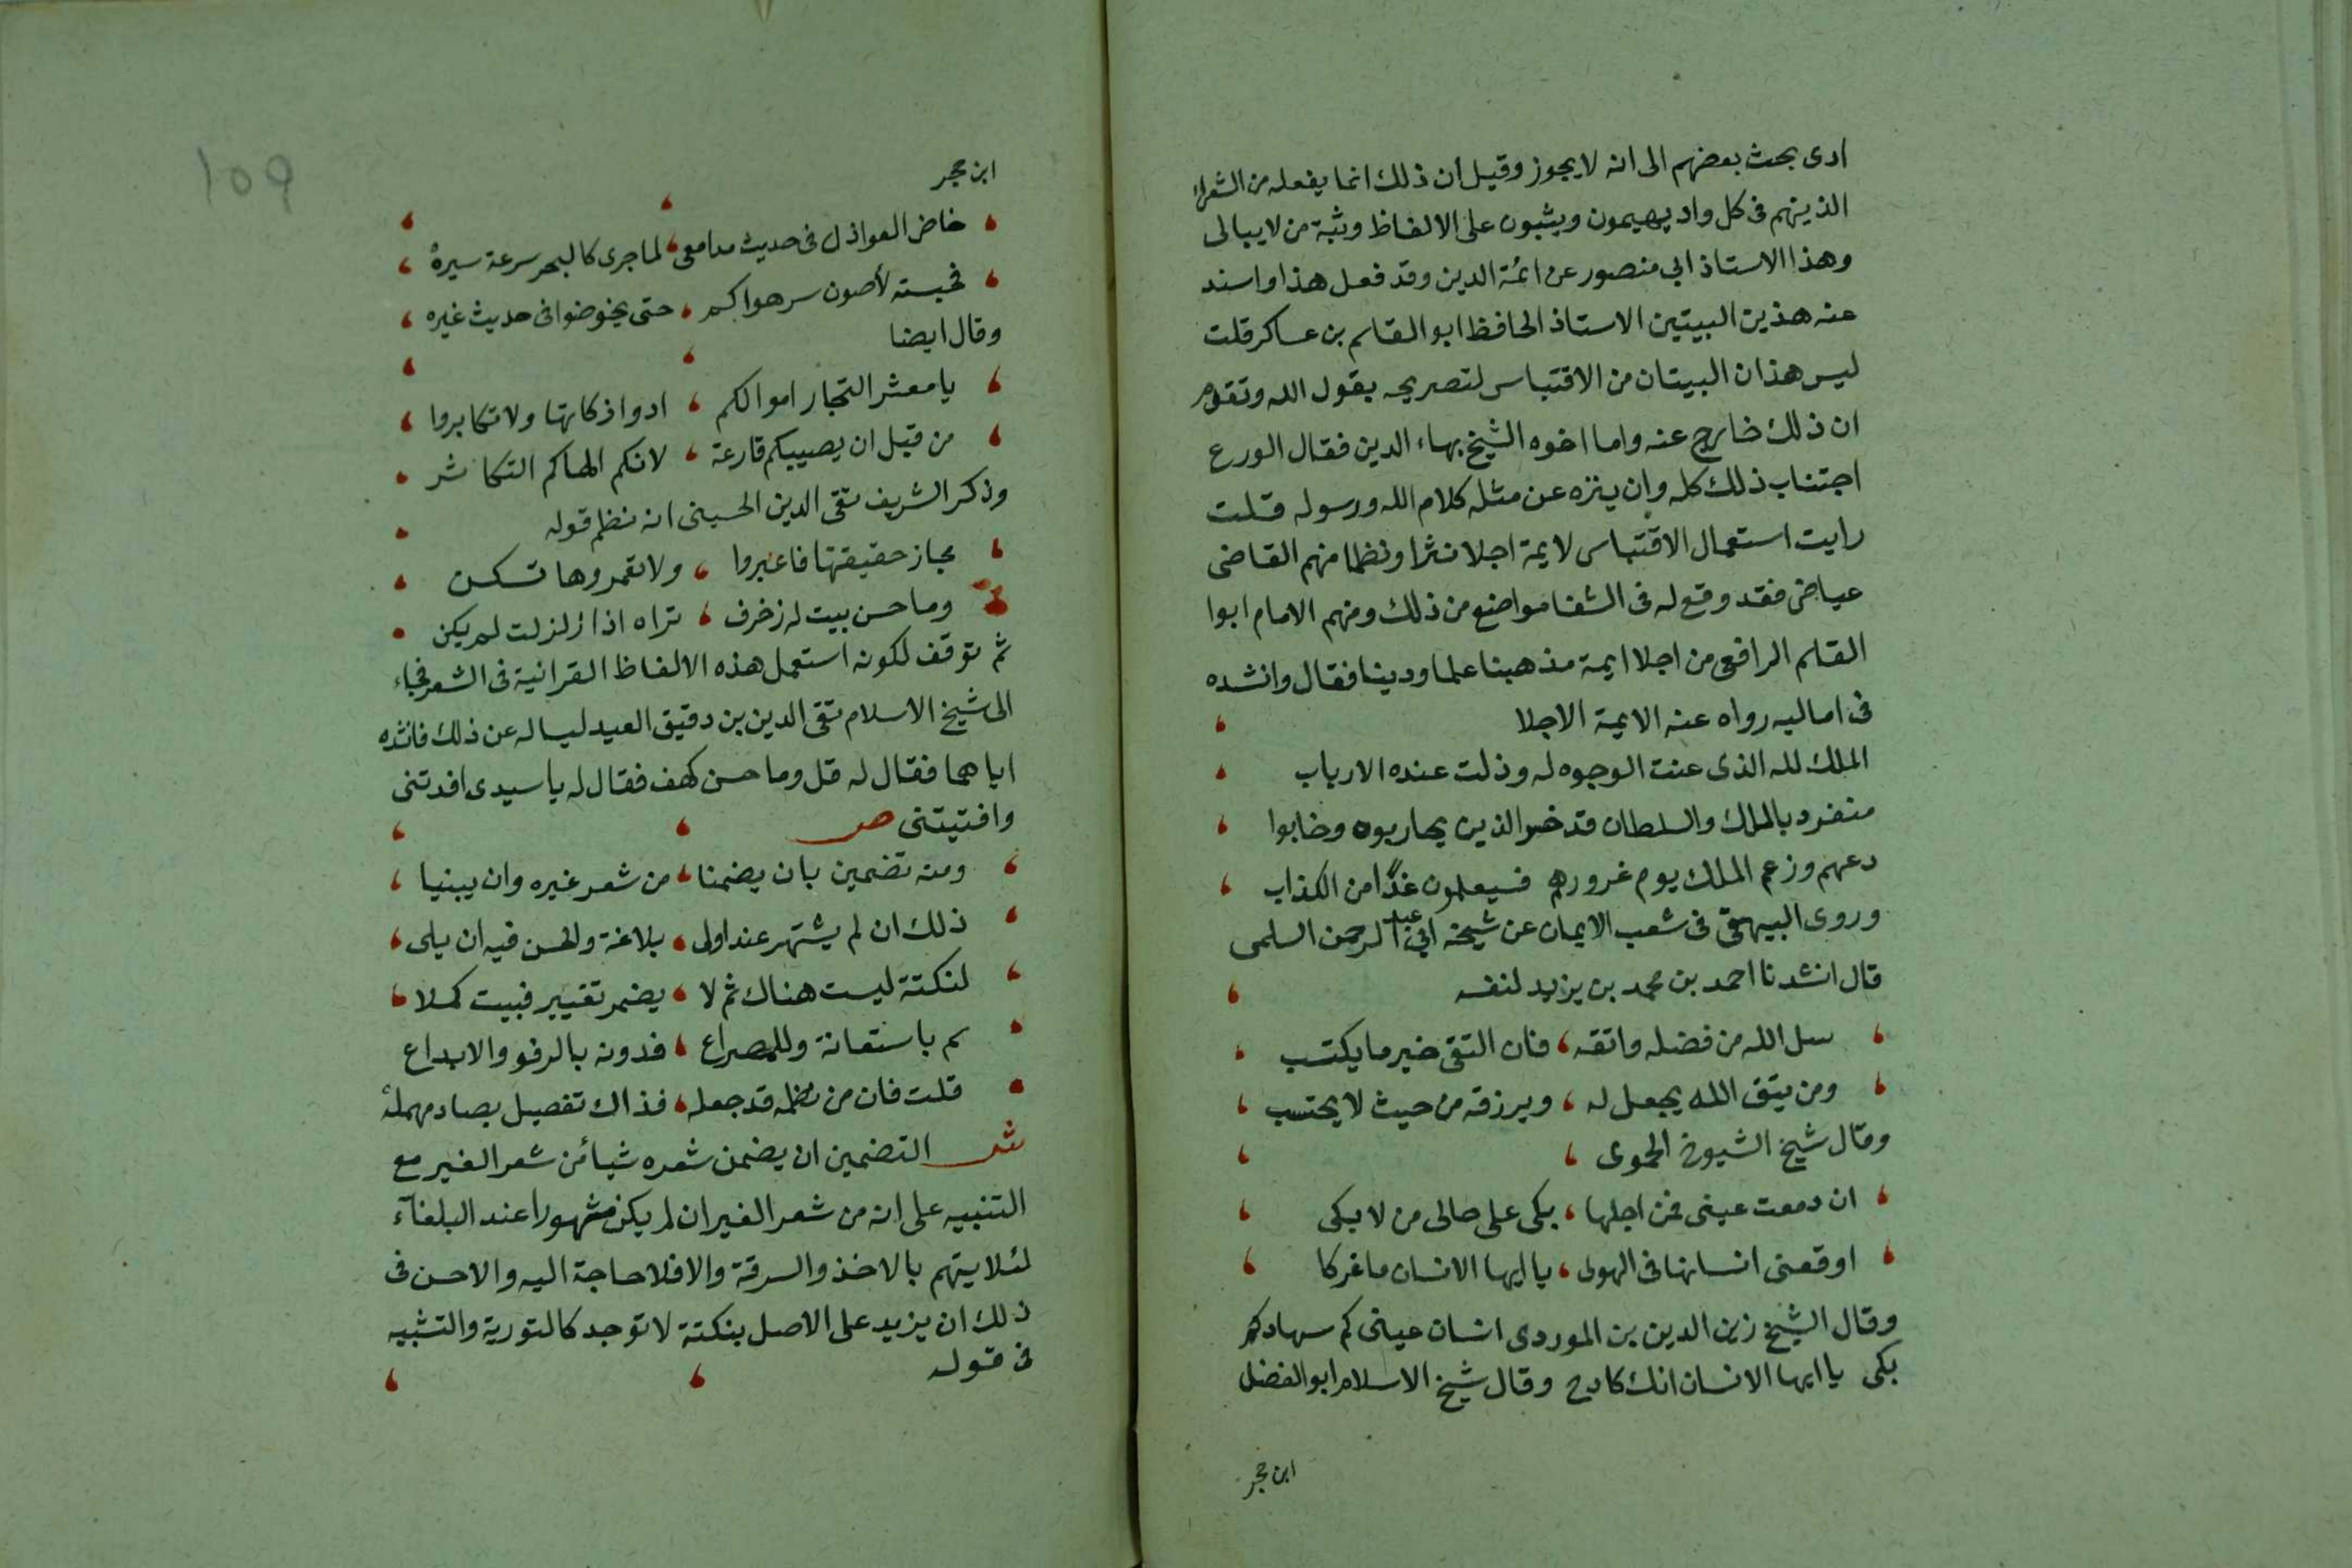 ادى بحث بعضهم الى انه لا يجوز وقيل ان ذلك انما يفعله من الشعراء
الذينهم فى كل واد يهيمون ويثبون على الالفاظ وثبة من لا يبالى
وهذا الاستاذ ابي منصور عن ائمة الدين وقد فعل هذا واسند
عنه هذين البيتين الاستاذ الحافظ ابو القاسم بن عساكر قلت
ليس هذان البيتان من الاقتباس لتصريحه بقول الله وتقدم
ان ذلك خارج عنه واما اخوه الشيخ بهاء الدين فقال الورع
اجتناب ذلك كله وان ينزه عن مثله كلام الله ورسوله قلت
رايت استعمال الاقتباس لايمة اجلا نثرا ونظما منهم القاضى
عياض فقد وقع له فى الشفا مواضع من ذلك ومنهم الامام ابوا
القاسم الرافعى من اجلا ايمة مذهبنا علما ودينا فقال وانشده
فى اماليه رواه عنه الايمة الاجلا
الملك لله الذى عنت الوجوه له وذلت عنده الارباب
منفرد بالملك والسلطان قد خسر الذين يحاربوه وخابوا
دعهم وزعم الملك يوم غرورهم فسيعلمون غدًا من الكذاب
وروى البيهقى فى شعب الايمان عن شيخه ابي عبد الرحمن السلمى
قال انشدنا احمد بن محمد بن يزيد لنفسه
سل الله من فضله واتقه، فان التقى خير ما يكتسب
ومن يتق الله يجعل له، ويرزقه من حيث لا يحتسب
وقال شيخ الشيوخ الحموى
ان دمعت عينى فمن اجلها، بكى على حالى من لا بكى
اوقعنى انسانها فى الهوى، يا ايها الانسان ما غركا
وقال الشيخ زين الدين بن الموردى انسان عينى كم سهاد كم
بكى يا ايها الانسان انك كادح وقال شيخ الاسلام ابو الفضل
ابن حجر
109
ابن حجر
خاض العواذل فى حديث مدامعى، لما جرى كالبحر سرعة سيره
فحبسته لأصون سر هواكم، حتى يخوضوا فى حديث غيره
وقال ايضا
يا معشر التجار اموالكم، ادوا زكاتها ولا تكابروا
من قبل ان يصيبكم قارعة، لانكم الهاكم التكاثر
وذكر الشريف تقى الدين الحسينى انه نظم قوله
مجاز حقيقتها فاعبروا، ولا تعمروها تسكن
وما حسن بيت له زخرف، تراه اذا زلزلت لم يكن
ثم توقف لكونه استعمل هذه الالفاظ القرانية فى الشعر فجاء
الى شيخ الاسلام تقى الدين بن دقيق العيد ليساله عن ذلك فانشده
اياهما فقال له قل وما حسن كهف فقال له يا سيدى افدتنى
وافتيتنى ص
ومنه تضمين بان يضمنا، من شعر غيره وان يبنيا
ذلك ان لم يشتهر عند اولى، بلاغة ولحسن فيه ان يلى
لنكتة ليست هناك ثم لا، يضر تغيير فبيت كملا
سم باستعانة وللمصراع، فدونه بالرفو والابداع
قلت فان من نظمه قد جعله، فذاك تفصيل بصاد مهمله
ش التضمين ان يضمن شعره شيأ من شعر الغير مع
التنبيه على انه من شعر الغير ان لم يكن مشهورا عند البلغآء
لئلا يتهم بالاخذ والسرقة والا فلا حاجة اليه والاحسن فى
ذلك ان يزيد على الاصل بنكتة لا توجد كالتورية والتشبيه
فى قوله